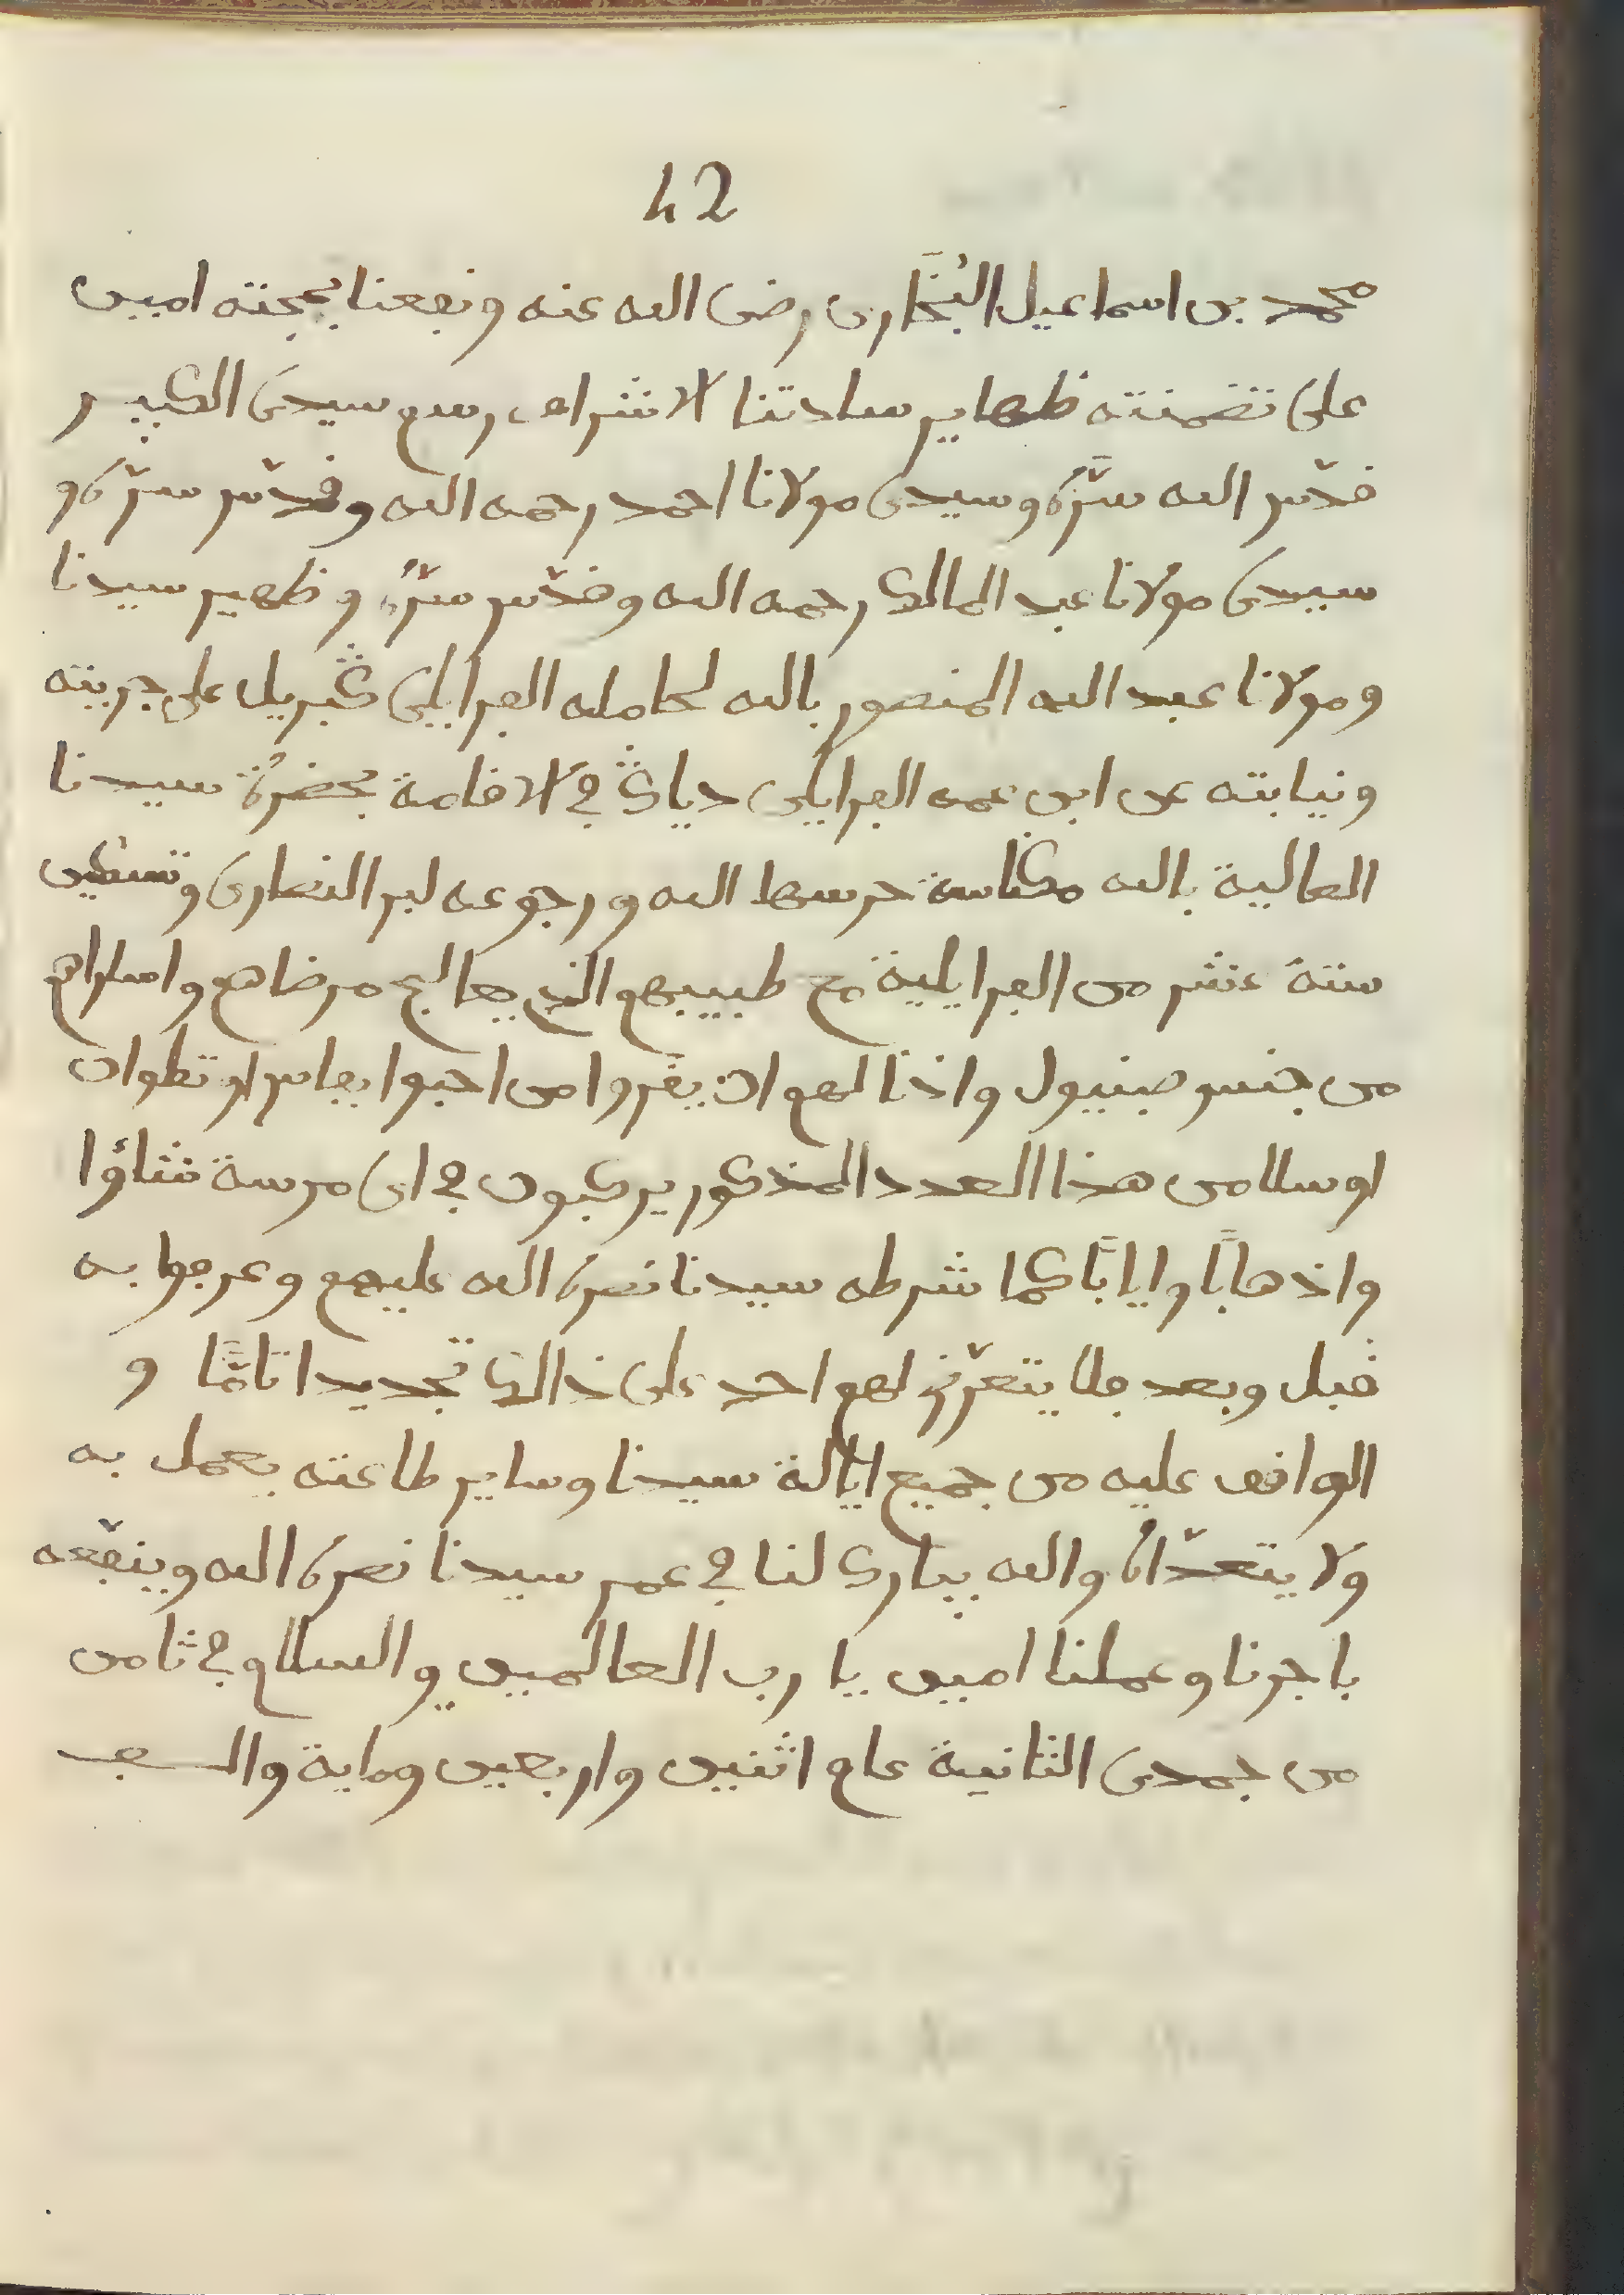 42
محمد بن اسماعيل البُخَّارى رضى الله عنه ونفعنا بمحبته امين
على تضمنته ظهاير ساداتنا الاشراف رسم سيدى الكبير
قدّس الله سرّه وسيدى مولانا احمد رحمه الله وقدّس سرّه و
سيدى مولانا عبد المالك رحمه الله وقدّس سرّه وظهير سيدنا
ومولانا عبد الله المنصور بالله لحامله الفرايلى ڭبريل على حريته
ونيابته عن ابن عمه الفرايلى دياڭ في الاقامة بحضرة سيدنا
العالية بالله مكناسة حرسها الله ورجوعه لبر النصارى وتسكين
ستة عشر من الفرايلية مع طبيبهم الذي يعالج مرضاهم واسراهم
من جنس صبنيول واذنا لهم ان يقروا من احبوا بفاس او تطوان
او سلا من هذا العدد المذكور يركبون في اى مرسة شاؤا
واذهابًا وايابًا كما شرطه سيدنا نصره الله عليهم وعرفوا به
قبل وبعد فلا يتعرّض لهم احد على ذالك تجديدا تامًّا و
الواقف عليه من جميع ايالة سيدنا وساير طاعته يعمل به
ولا يتعدّاه والله يبارك لنا في عمر سيدنا نصره الله وينفعه
باجرنا وعملنا امين يا رب العالمين والسلام في ثامن
من جمدى الثانية عام اثنين واربعين وماية والف